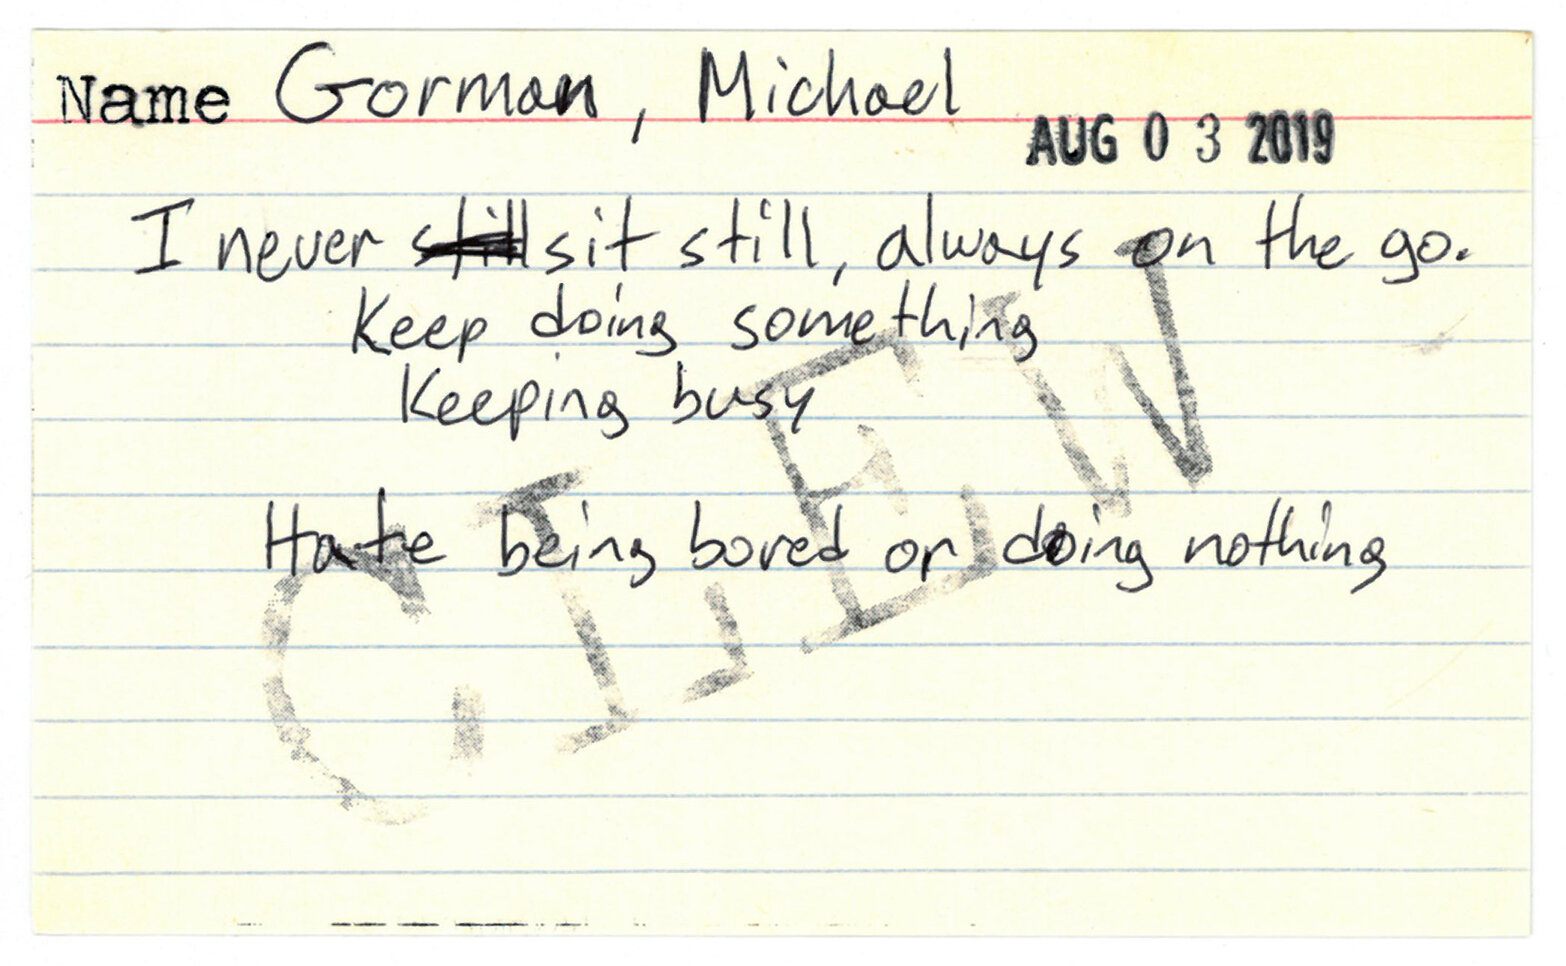 Name Gorman, Michael
AUG 03 2019
I never still sit still, always on the go.
Keep doing something
Keeping busy
Hate being bored or doing nothing
CLEW